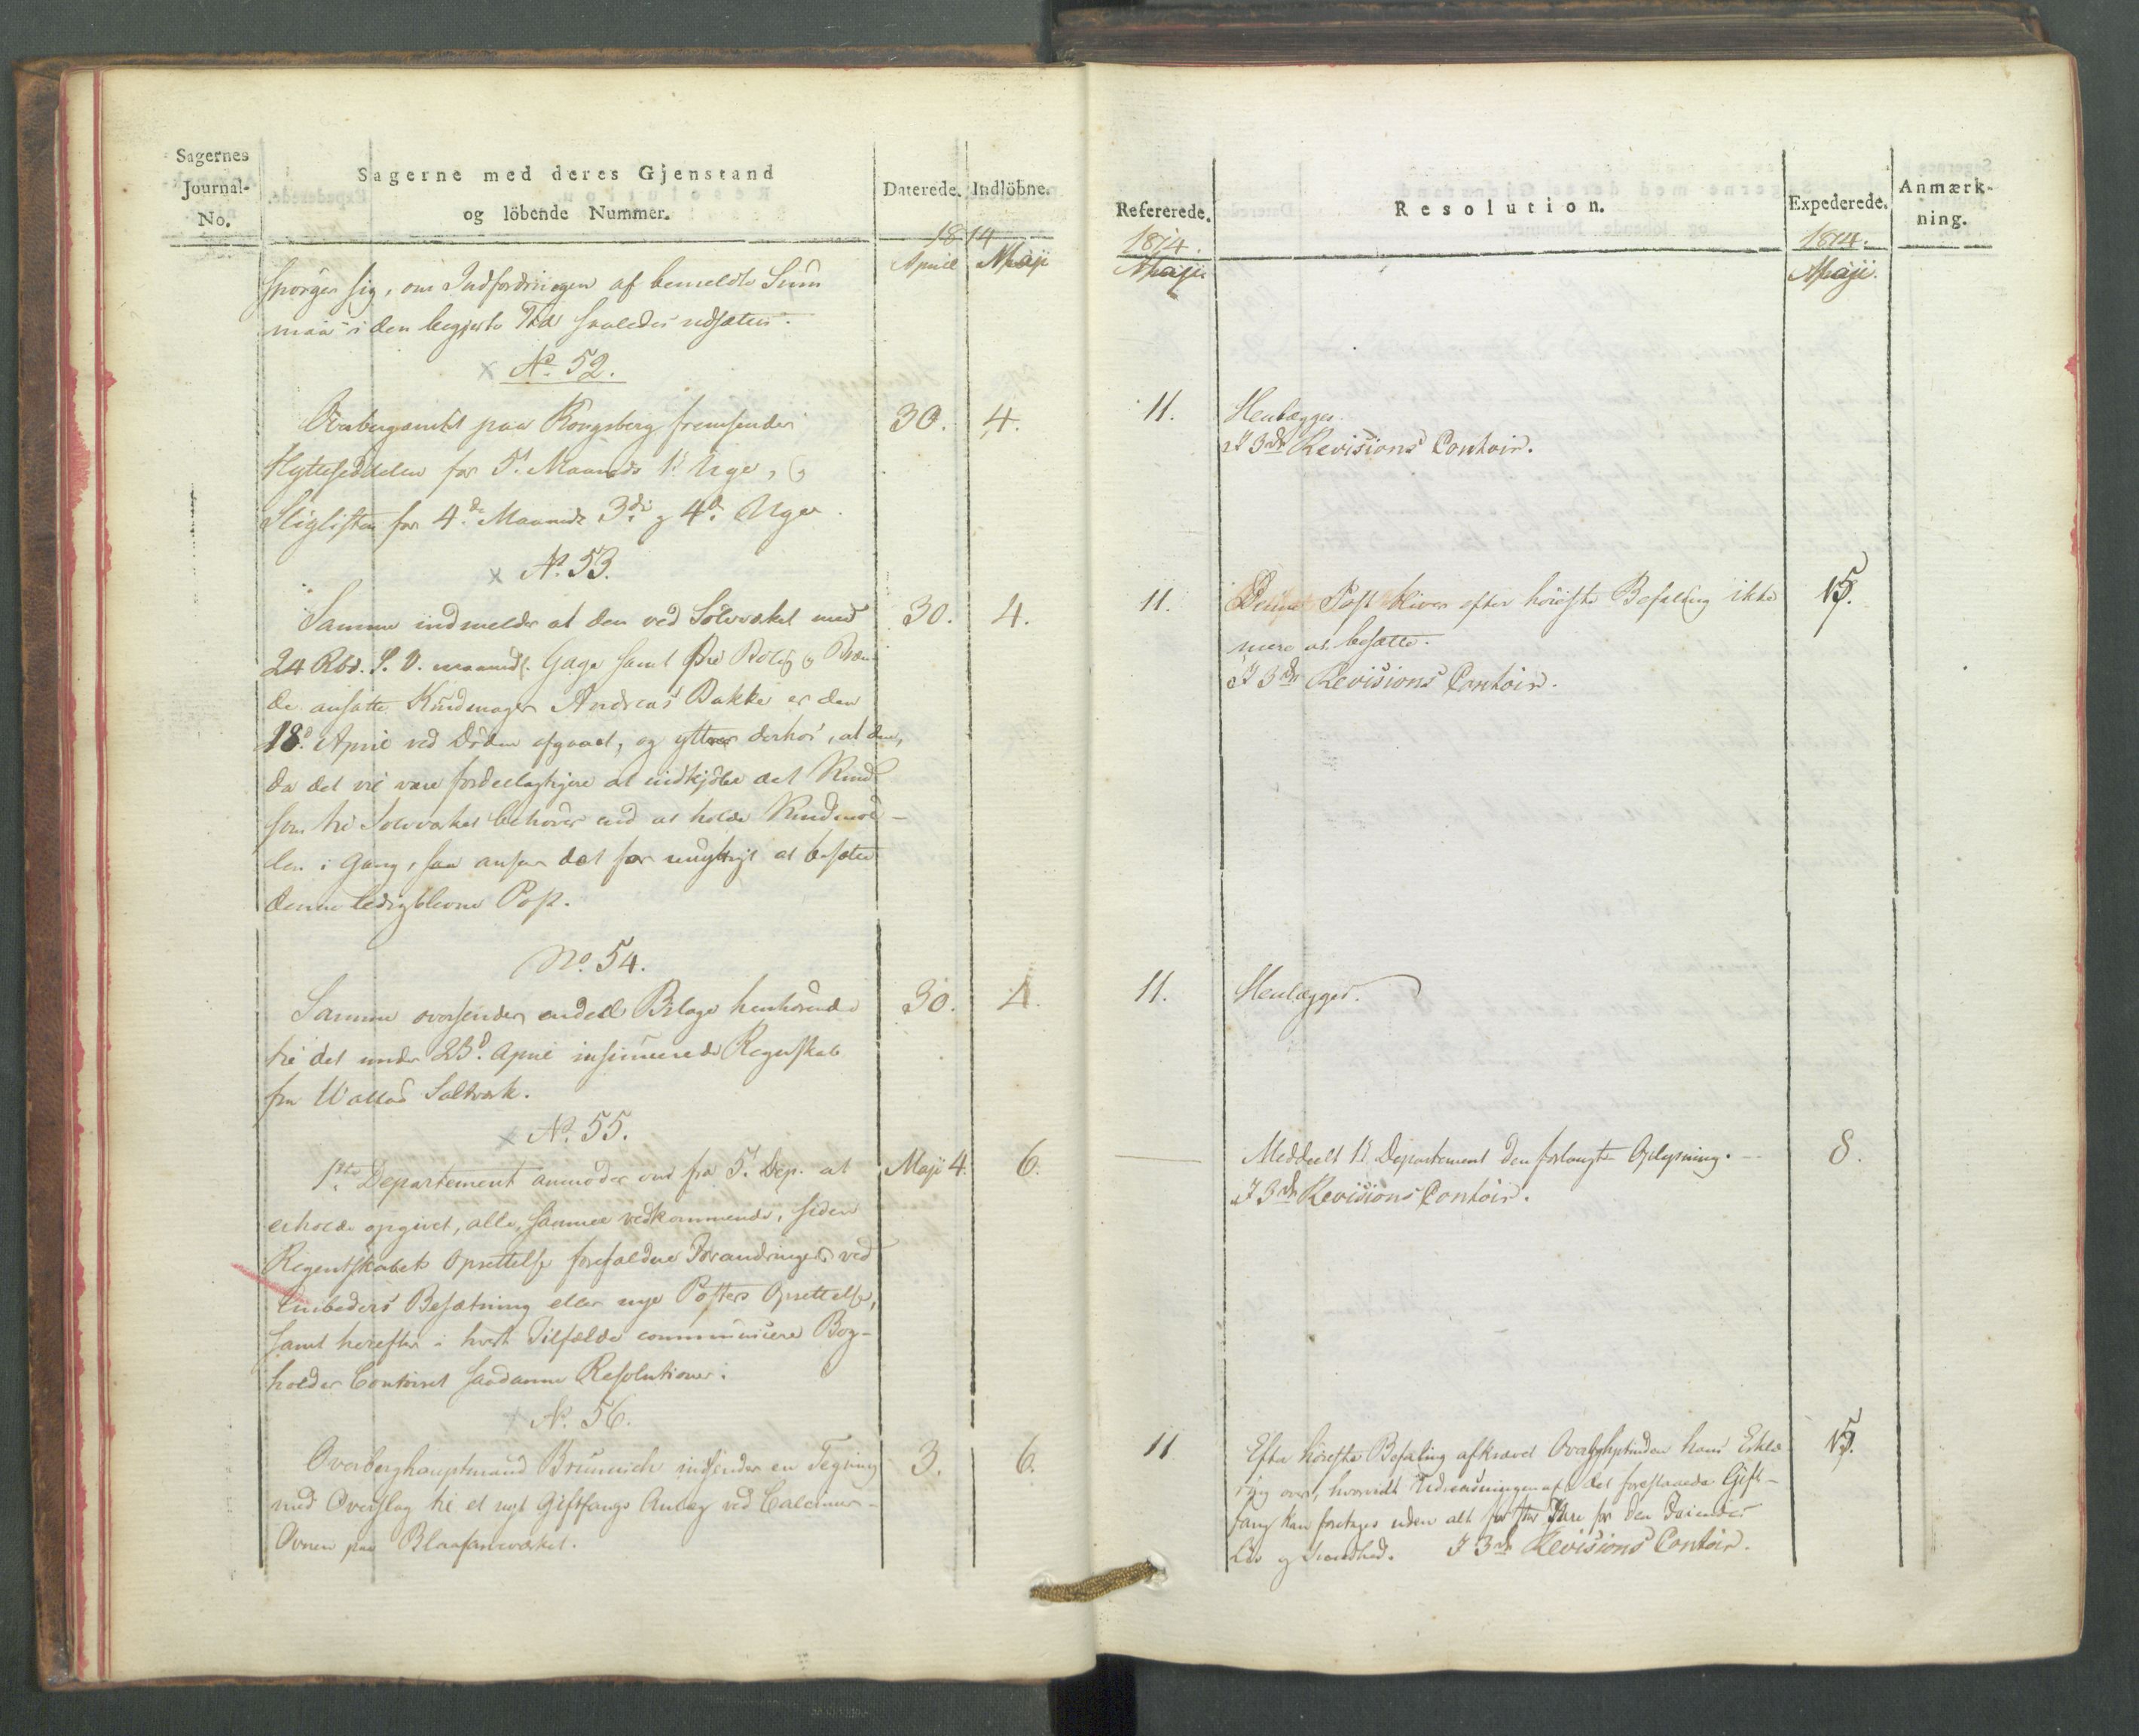 Sagernes
Journal-
No.
Sagerne med deres Gjenstand
og löbende Nummer.
Daterede.
Indlöbne.
1814
April
Maji
spørger sig, om Indfordringen af bemeldte Sum
maa i den begjerte Tid saaledes udsættes.
No. 52.
Overbergamtet paa Kongsberg fremsender
30.
4.
Hytteseddelen for 5t Maaneds 1t Uge, og
Sliglisten for 4de Maaneds 3die og 4de Uger.
No. 53.
Samme indmelder at den ved Sølvverket med
30.
4.
24 Rbd. S. V. maanedl. Gage samt frie Bolig og Bræn-
de ansatte Krudmager Andreas Bakke er den
18d April ved Døden afgaaet, og yttrer derhos, at den,
da det vil være fordeelagtigere at indkjøbe det Krud
som til Sølvverket behøves end at holde Krudmøl-
len i Gang, saa anseer det for unyttigt at besætte
denne ledigblevne Post.
No. 54.
Samme oversender endeel Bilage henhørende
30.
4.
til det under 23d April insinuerede Regnskab
fra Walløe Saltverk.
No. 55.
1ste Departement anmoder om fra 5t Dep. at
Maji 4.
6.
erholde opgivet, alle, samme vedkommende, siden
Regentskabets Oprettelse forefaldne Forandringer ved
Embeders Besætning eller nye Posters Oprettelse,
samt herefter i hvert Tilfælde communicere Bog-
holder Contoiret saadanne Resolutioner.
No. 56.
Overberghauptmand Brünnich indsender en Tegning
3.
6.
med Overslag til et nyt Giftfangs Anlæg ved Calciner-
Ovnen paa Blaafarveverket.
Refererede.
Resolution.
Expederede.
Anmærk-
ning.
1814.
Maji
1814.
Maji.
11.
Henlægges.
I 3die Revisions Contoir.
11.
Denne Post bliver efter høieste Befaling ikke
15.
mere at besætte.
I 3die Revisions Contoir.
11.
Henlægges.
Meddeelt 1t Departement den forlangte Oplysning.
8.
I 3die Revisions Contoir.
11
Efter høieste Befaling afkrævet Overbghptmden hans Erklæ-
15.
ring over, hvorvidt Nedrivningen af det foreslaaede Gift-
fang kan foretages uden alt for stor Fare for den
Liv og Sundhed. I 3die Revisions Contoir.